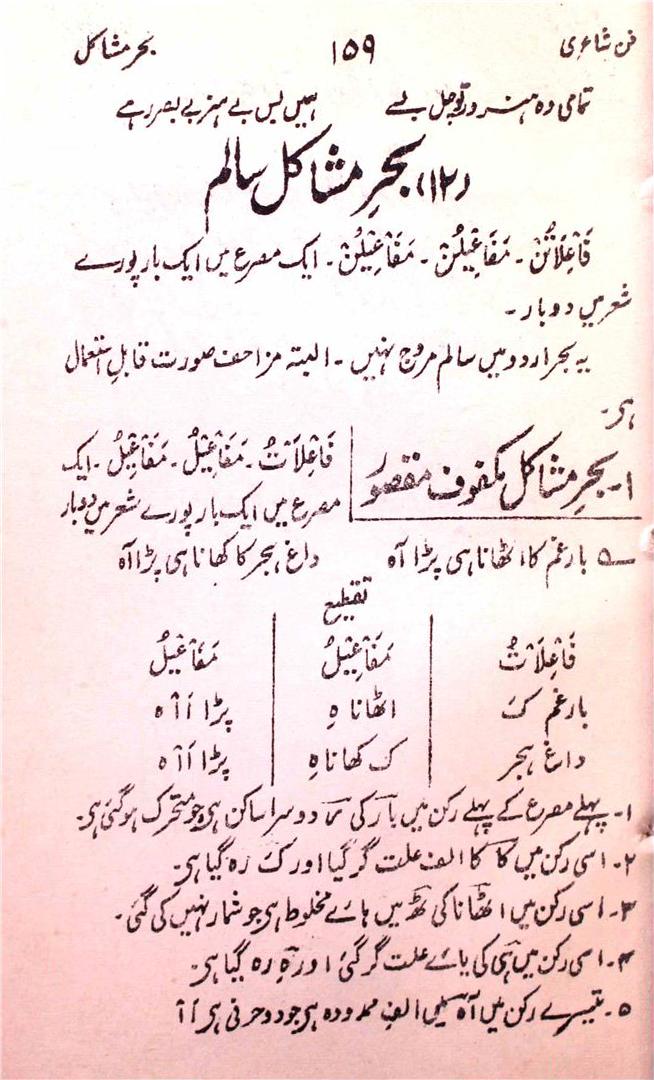 فن شاعری ۱۵۹ بحر مشاکل
تمامی وہ ہنرور تو چل بسے ہمیں بس بے ہنر بے بصر رہے
(۱۲) بحرِ مشاکل سالم
فَاعِلَاتُنْ۔ مَفَاعِیْلُنْ۔ مَفَاعِیْلُنْ۔ ایک مصرع میں ایک بار پورے
شعر میں دو بار۔
یہ بحر اردو میں سالم مروج نہیں۔ البتہ مزاحف صورت قابلِ استعمال
ہی۔
۱۔ بحرِ مشاکل مکفوف مقصور
فَاعِلَاتُ۔ مَفَاعِیْلُ۔ مَفَاعِیْلُ۔ ایک
مصرع میں ایک بار پورے شعر میں دوبار
؎ بار غم کا اٹھانا ہی پڑا آہ داغ ہجر کا کھانا ہی پڑا آہ
تقطیع
فَاعِلَاتُ مَفَاعِیْلُ مَفَاعِیْلُ
بار غم کَ اٹھانا ہِ پڑا اَاْہ
داغ ہجر ک کھانا ہِ پڑا اَاْہ
۱۔ پہلے مصرع کے پہلے رکن میں بار کی ر دوسرا ساکن ہی جو متحرک ہو گئی ہی۔
۲۔ اسی رکن میں کا کا الف علت گر گیا اور کَ رہ گیا ہی۔
۳۔ اسی رکن میں اٹھانا کی ٹھ میں ہائے مخلوط ہی جو شمار نہیں کی گئی۔
۴۔ اسی رکن میں ہی کی یائے علت گر گئی اور ہِ رہ گیا ہی۔
۵۔ تیسرے رکن میں آہ میں الف ممدودہ ہی جو دو حرفی ہی اَاْ